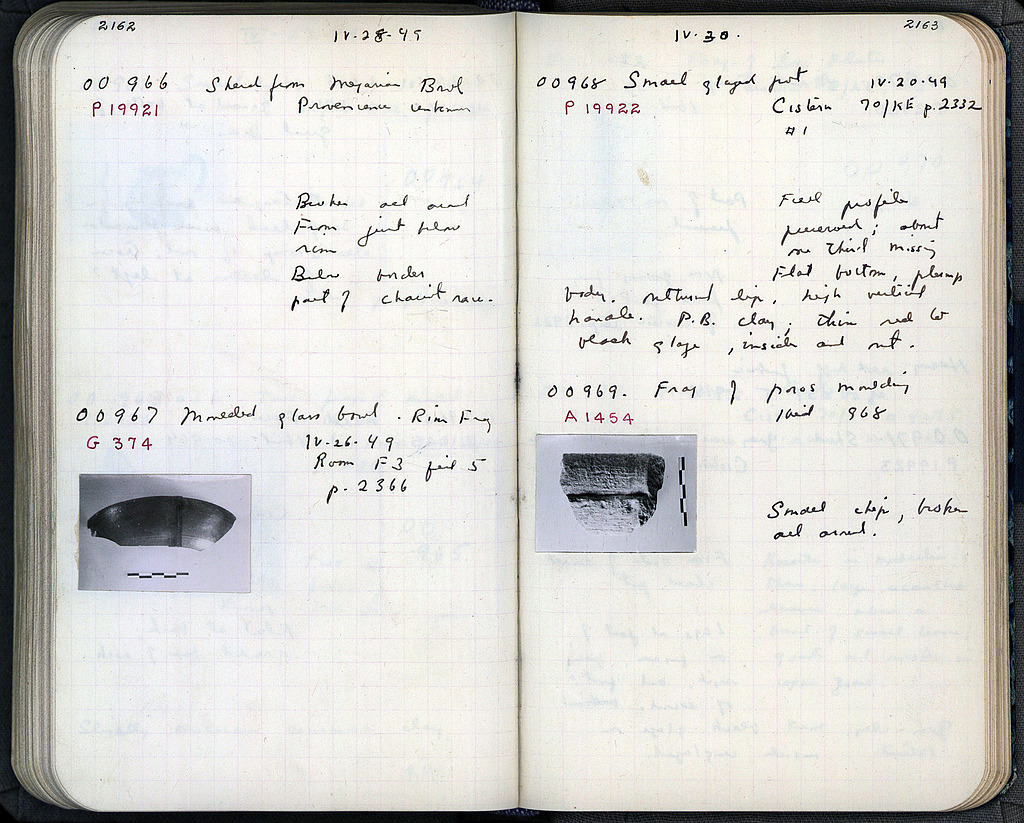 2162
IV-28-49
OO966 Sherd from Megarian Bowl
P 19921 Provenience unknown
Broken all around
From just below
rim
Below border
part of chariot race.
OO967 Moulded glass bowl. Rim Frag
G 374 IV-26-49
Room F3 fill 5
p. 2366
2163
IV-30.
OO968 Small glazed pot IV-20-49
P 19922 Cistern 70/KE p. 2332
#1
Full profile
preserved; about
one third missing
Flat bottom, plump
body. outturned lip, high vertical
handle. P.B. clay; thin red to
black glaze, inside and out.
OO969. Frag of poros moulding
A 1454 1968
Small chip, broken
all around.